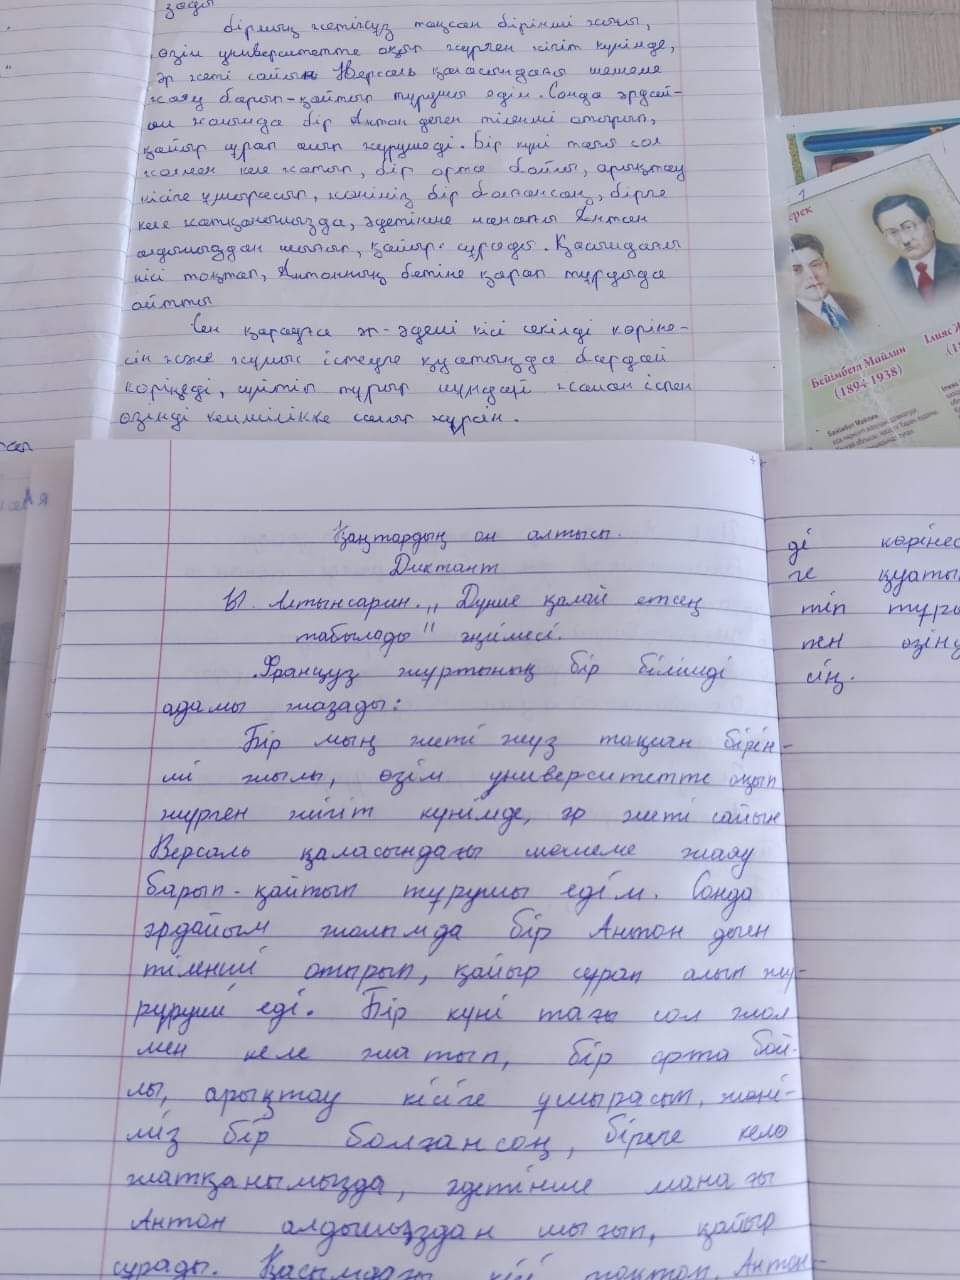 зады
бірмың жетіжүз тоқсан бірінші жылы,
өзім университетте оқып жүрген жігіт күнімде,
әр жеті сайын Версаль қаласындағы шешеме
жаяу барып-қайтып тұрушы едім. Сонда әрдай-
ым жолымда бір Антон деген тіленші отырып,
қайыр сұрап алып жүрушеді. Бір күні тағы сол
жолмен келе жатып, бір орта бойлы, арықтау
кісіге ұшырасып, жөніміз бір болғансоң, бірге
келе жатқанымызда, әдетінше манағы Антон
алдымыздан шығып, қайыр сұрады. Қасымдағы
кісі тоқтап, Антонның бетіне қарап тұрдыда
айтты
Сен қарауға әп-әдемі кісі секілді көріне-
сің және жұмыс істеуге қуатыңда бардай
көрінеді, үйтіп тұрып мұндай жаман іспен
өзіңді кемшілікке салып жүрсің.
Бейімбет Майлин
(1894-1938)
Ілияс Ж
Қаңтардың он алтысы.
Диктант
Ы. Алтынсарин. „Дүние қалай етсең
табылады" әңгімесі.
Француз жұртының бір білімді
адамы жазады:
Бір мың жеті жүз тоқсан бірін-
ші жылы, өзім университетте оқып
жүрген жігіт күнімде, әр жеті сайын
Версаль қаласындағы шешеме жаяу
барып-қайтып тұрушы едім. Сонда
әрдайым жолымда бір Антон деген
тіленші отырып, қайыр сұрап алып жү-
рұруші еді. Бір күні тағы сол жол
мен келе жатып, бір орта бой-
лы, арықтау кісіге ұшырасып, жөні-
міз бір болғансоң, бірге келе
жатқанымызда, әдетінше манағы
Антон алдымыздан шығып, қайыр
сұрады. Қасымдағы кісі тоқтап, Антон-
ді көрінес
ге қуаты
тіп тұры
пен өзіңд
сің.